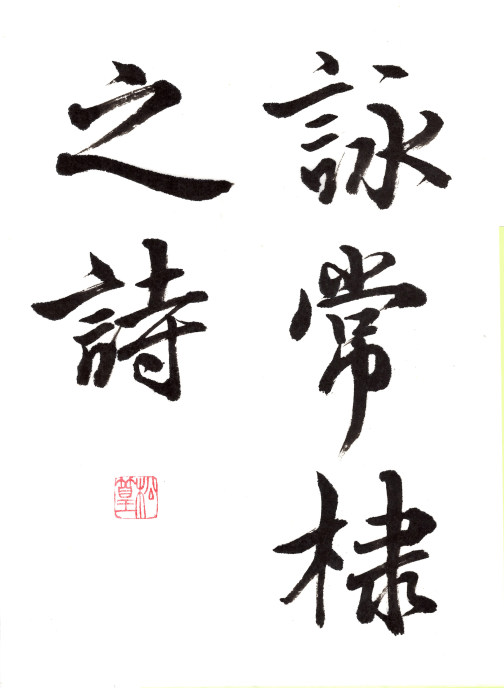 詠常棣
之詩